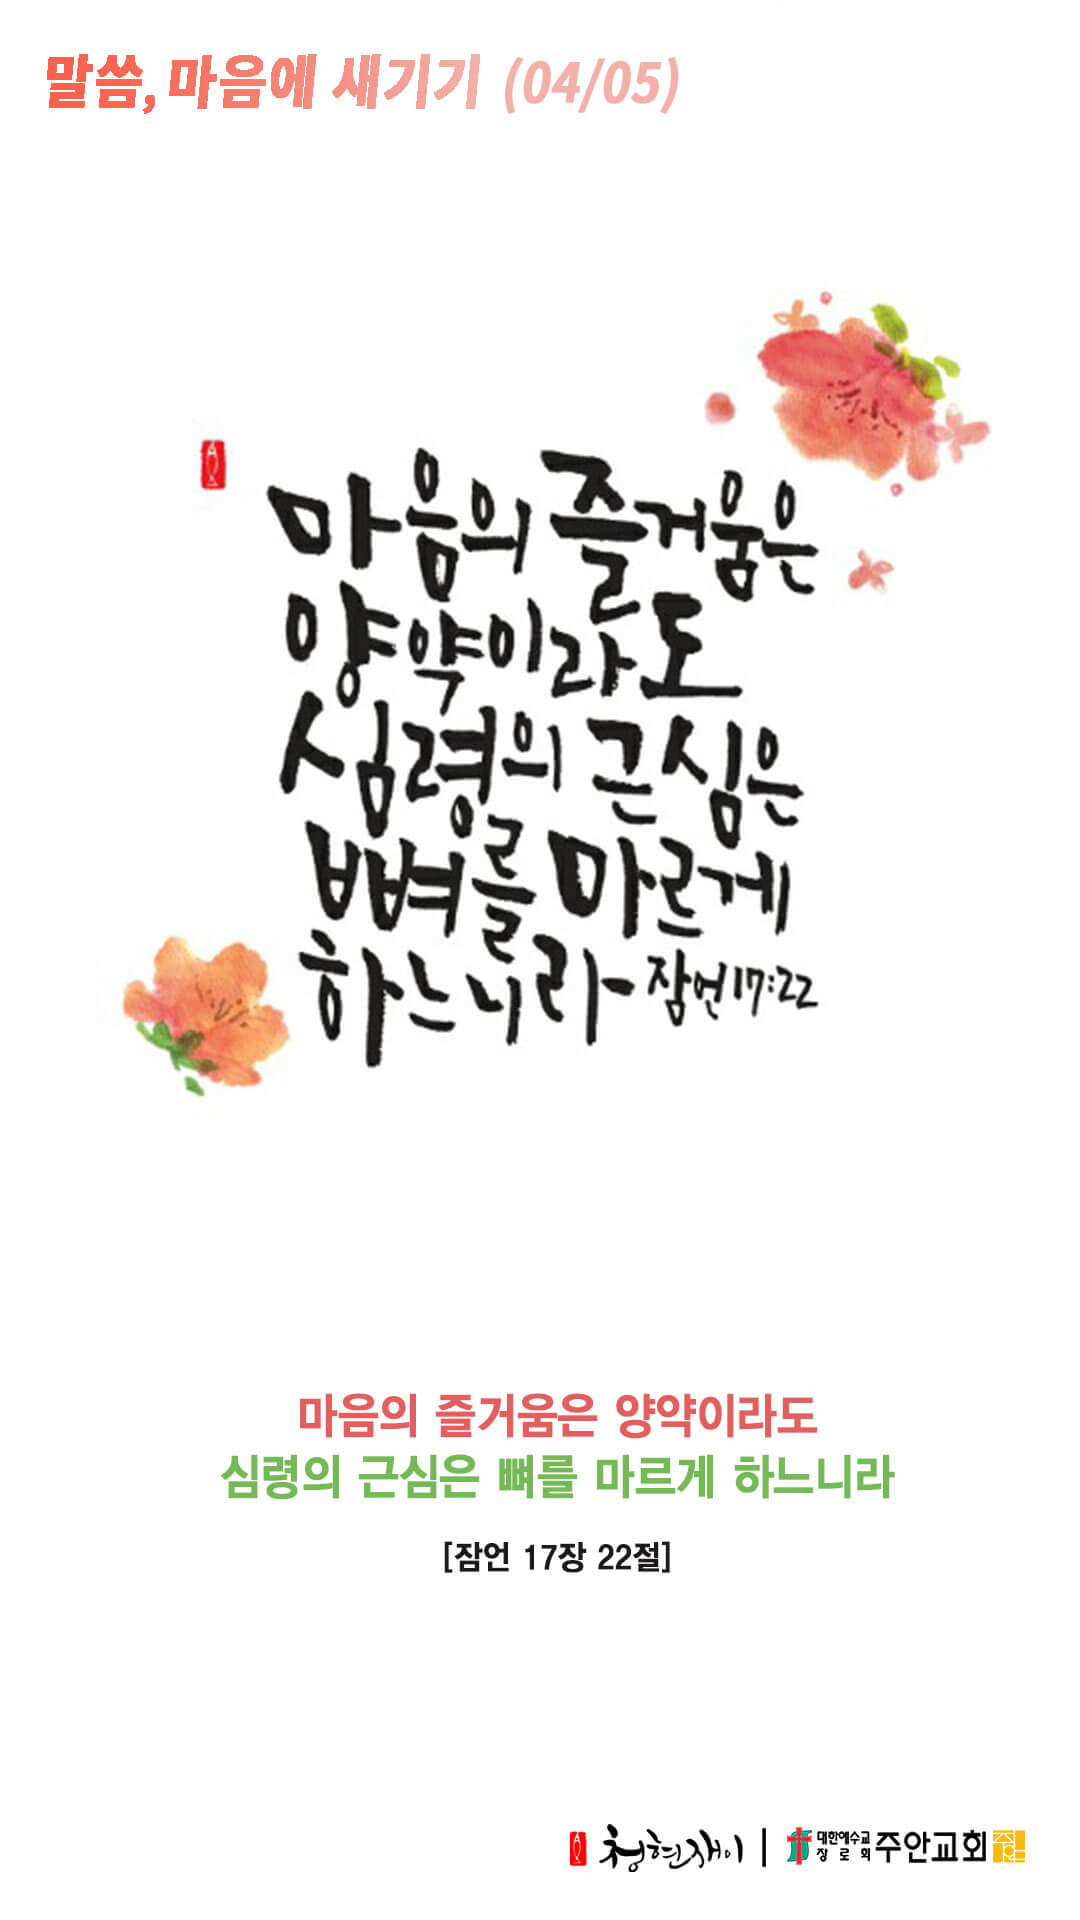 말씀, 마음에 새기기 (04/05)
마음의 즐거움은
양약이라도
심령의 근심은
뼈를 마르게
하느니라 잠언17:22
마음의 즐거움은 양약이라도
심령의 근심은 뼈를 마르게 하느니라
[잠언 17장 22절]
청현재이 | 대한예수교장로회 주안교회